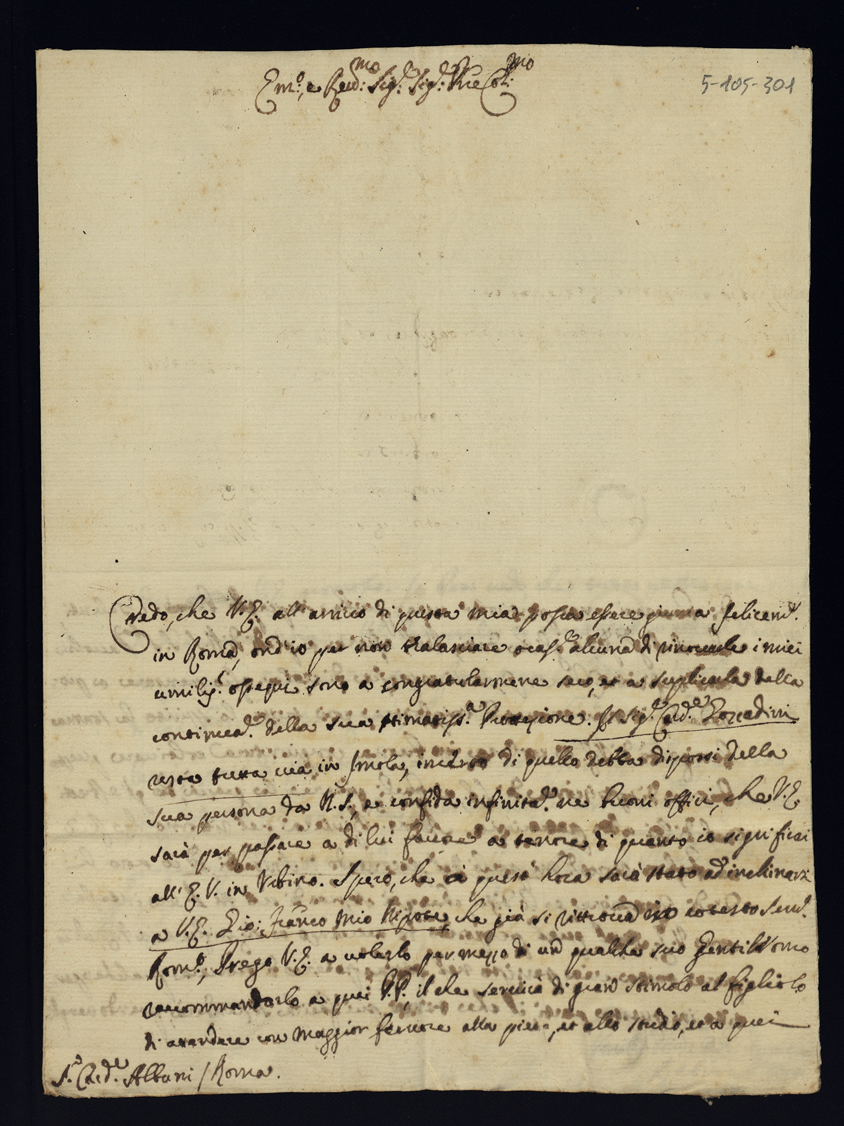 Em:º, e Reu:mo Sig:r Sig:r Pne Col:mo
5-105-301
Credo, che V.E. all'arrivo di questa mia possa essere giunta felicem:te
in Roma, ond'io per non tralasciare ocas:e alcuna di rinovarle i miei
umiliss:i ossequi sono a congratularmene seco, et a suplicarla della
continuaz:e della sua stimatiss:a Protezione. Il Sig:r Card:e Gozzadini
resta tutta via in Imola, incerto di quello debba disporsi della
sua persona da N.S., e confida infinitam:te ne buoni offici, che V.E.
sarà per passare a di lui favore a tenore di quanto io significai
all'E.V. in Urbino. Spero, che a quest'hora sarà stato ad inchinarsi
a V.E. Gio: Franco mio Nipote, che già si ritrova in cotesto Sem:o
Rom:o, Prego V.E. a volerlo per mezzo di un qualche suo Gentilomo
raccommandarlo a quei P.P., il che servirà di gran stimolo al figliolo
di attendere con maggior fervore alla pietà, et allo studio, et a quei
S:r Card:e Albani / Roma.